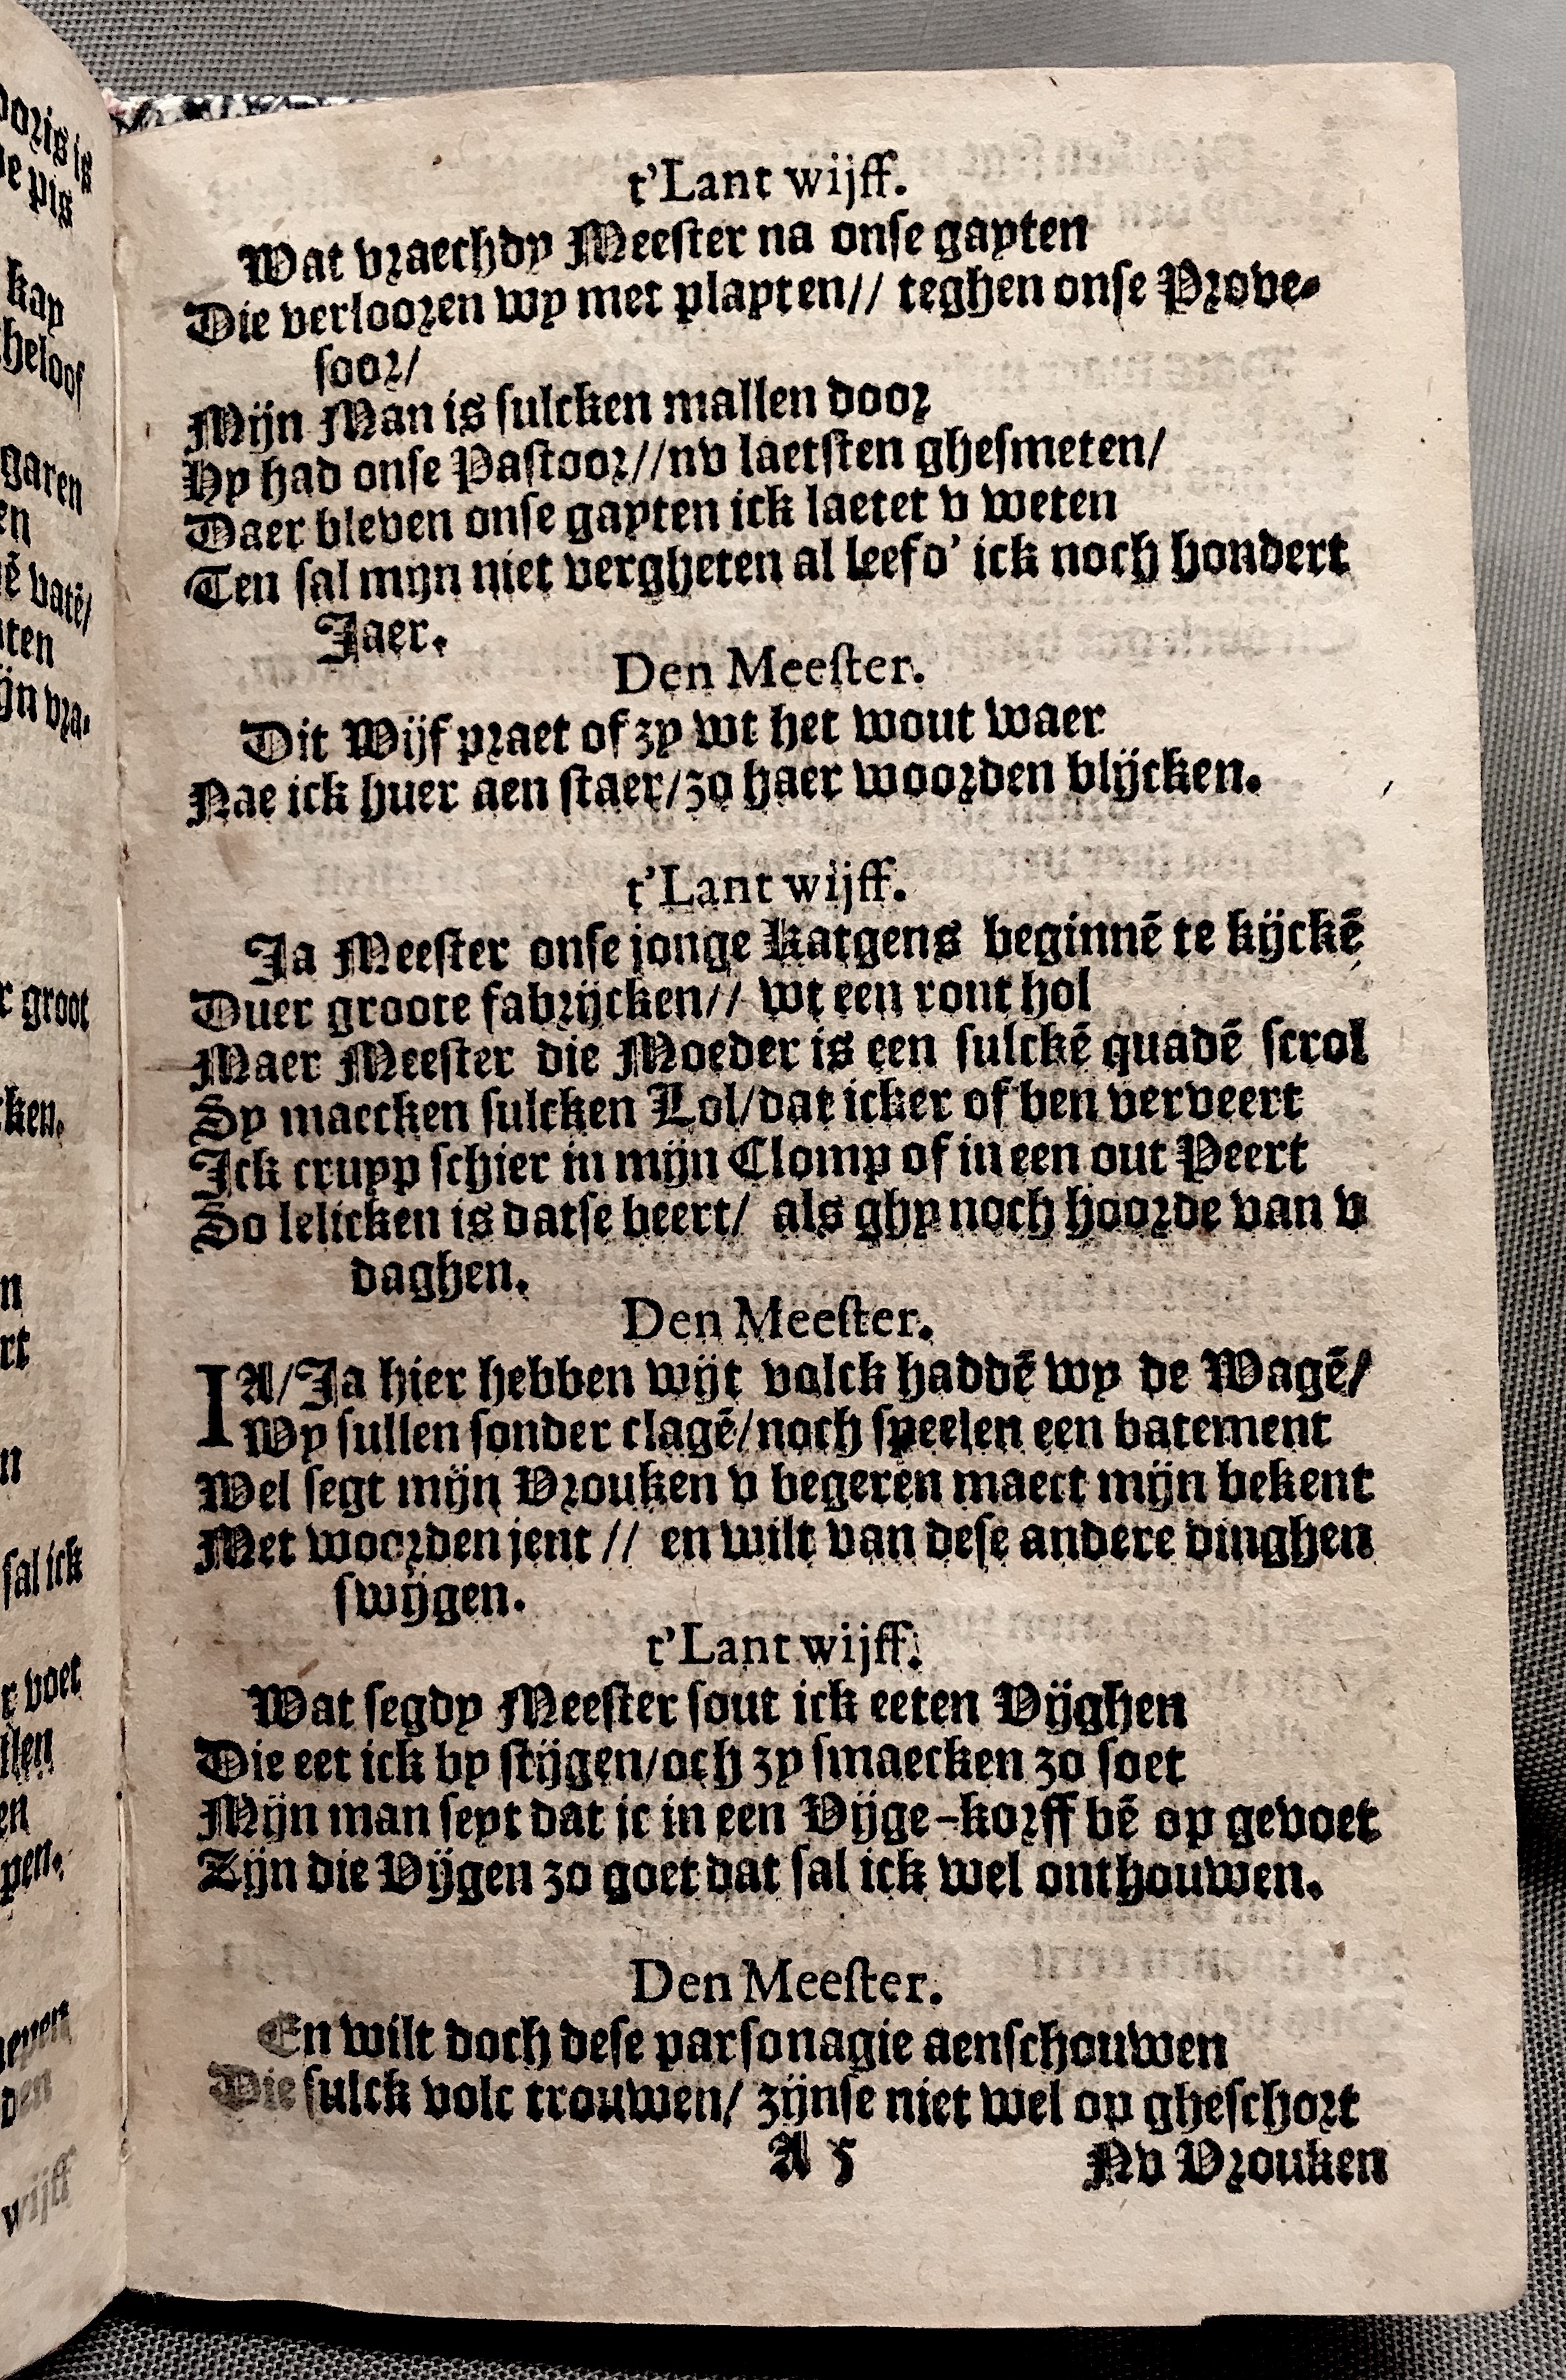 t'Lant wijff.
Wat vraechdy Meester na onse gayten
Die verlooren wy met playten// teghen onse Prove-
soor/
Mijn Man is sulcken mallen door
Hy had onse Pastoor//nv laetsten ghesmeten/
Daer bleven onse gayten ick laetet v weten
Ten sal mijn niet vergheten al leefd' ick noch hondert
Jaer.
Den Meester.
Dit Wijf praet of zy wt het wout waer
Nae ick huer aen staer/zo haer woorden blijcken.
t'Lant wijff.
Ja Meester onse jonge Katgens beginnē te kijckē
Duer groote fabrijcken// wt een ront hol
Maer Meester die Moeder is een sulckē quadē scrol
Sy maecken sulcken Lol/dat icker of ben verveert
Ick crupp schier in mijn Clomp of in een out Peert
So lelicken is datse beert/ als ghy noch hoorde van v
daghen.
Den Meester.
IA/Ja hier hebben wijt volck haddē wy de Wagē/
Wy sullen sonder clagē/noch speelen een batement
Wel segt mijn Vrouken v begeren maect mijn bekent
Met woorden jent // en wilt van dese andere dinghen
swijgen.
t'Lant wijff.
Wat segdy Meester sout ick eeten Vijghen
Die eet ick by stijgen/och zy smaecken zo soet
Mijn man seyt dat ic in een Vijge-korff bē op gevoet
Zijn die Vijgen zo goet dat sal ick wel onthouwen.
Den Meester.
En wilt doch dese parsonagie aenschouwen
Die sulck volc trouwen/ zijnse niet wel op gheschort
A 5
Nv Vrouken